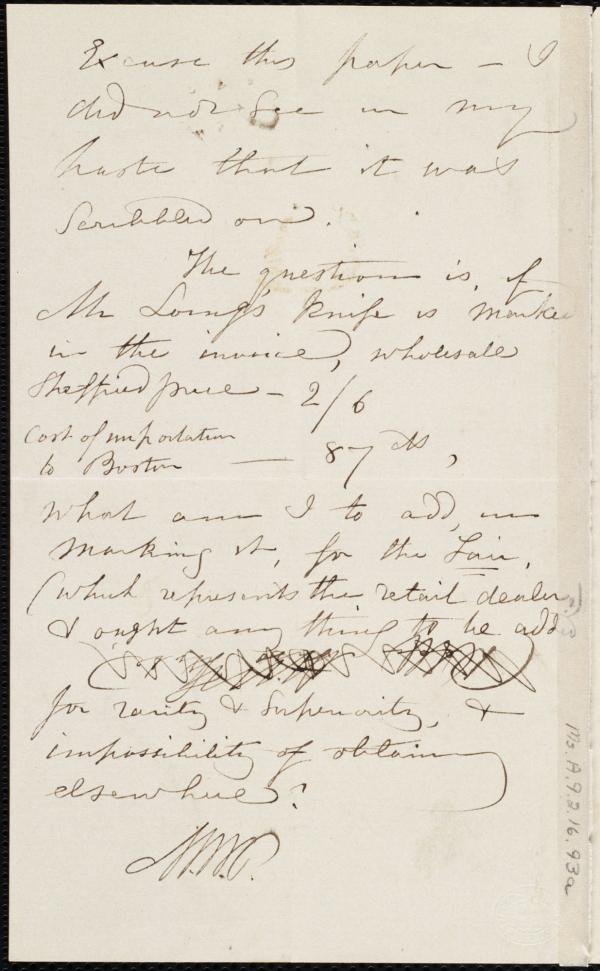 Excuse this paper — I
did not see in my
haste that it was
scribbled on.
The question is, if
Mr Loring's knife is marked
in the invoice, wholesale
Sheffield price — 2/6
Cost of importation
to Boston — 87 cts,
what am I to add, in
marking it, for the Fair,
(which represents the retail dealer
& ought any thing to be add
for rarity & superiority, &
impossibility of obtaining
elsewhere?
M.W.C.
Ms. A.9.2.16.93a